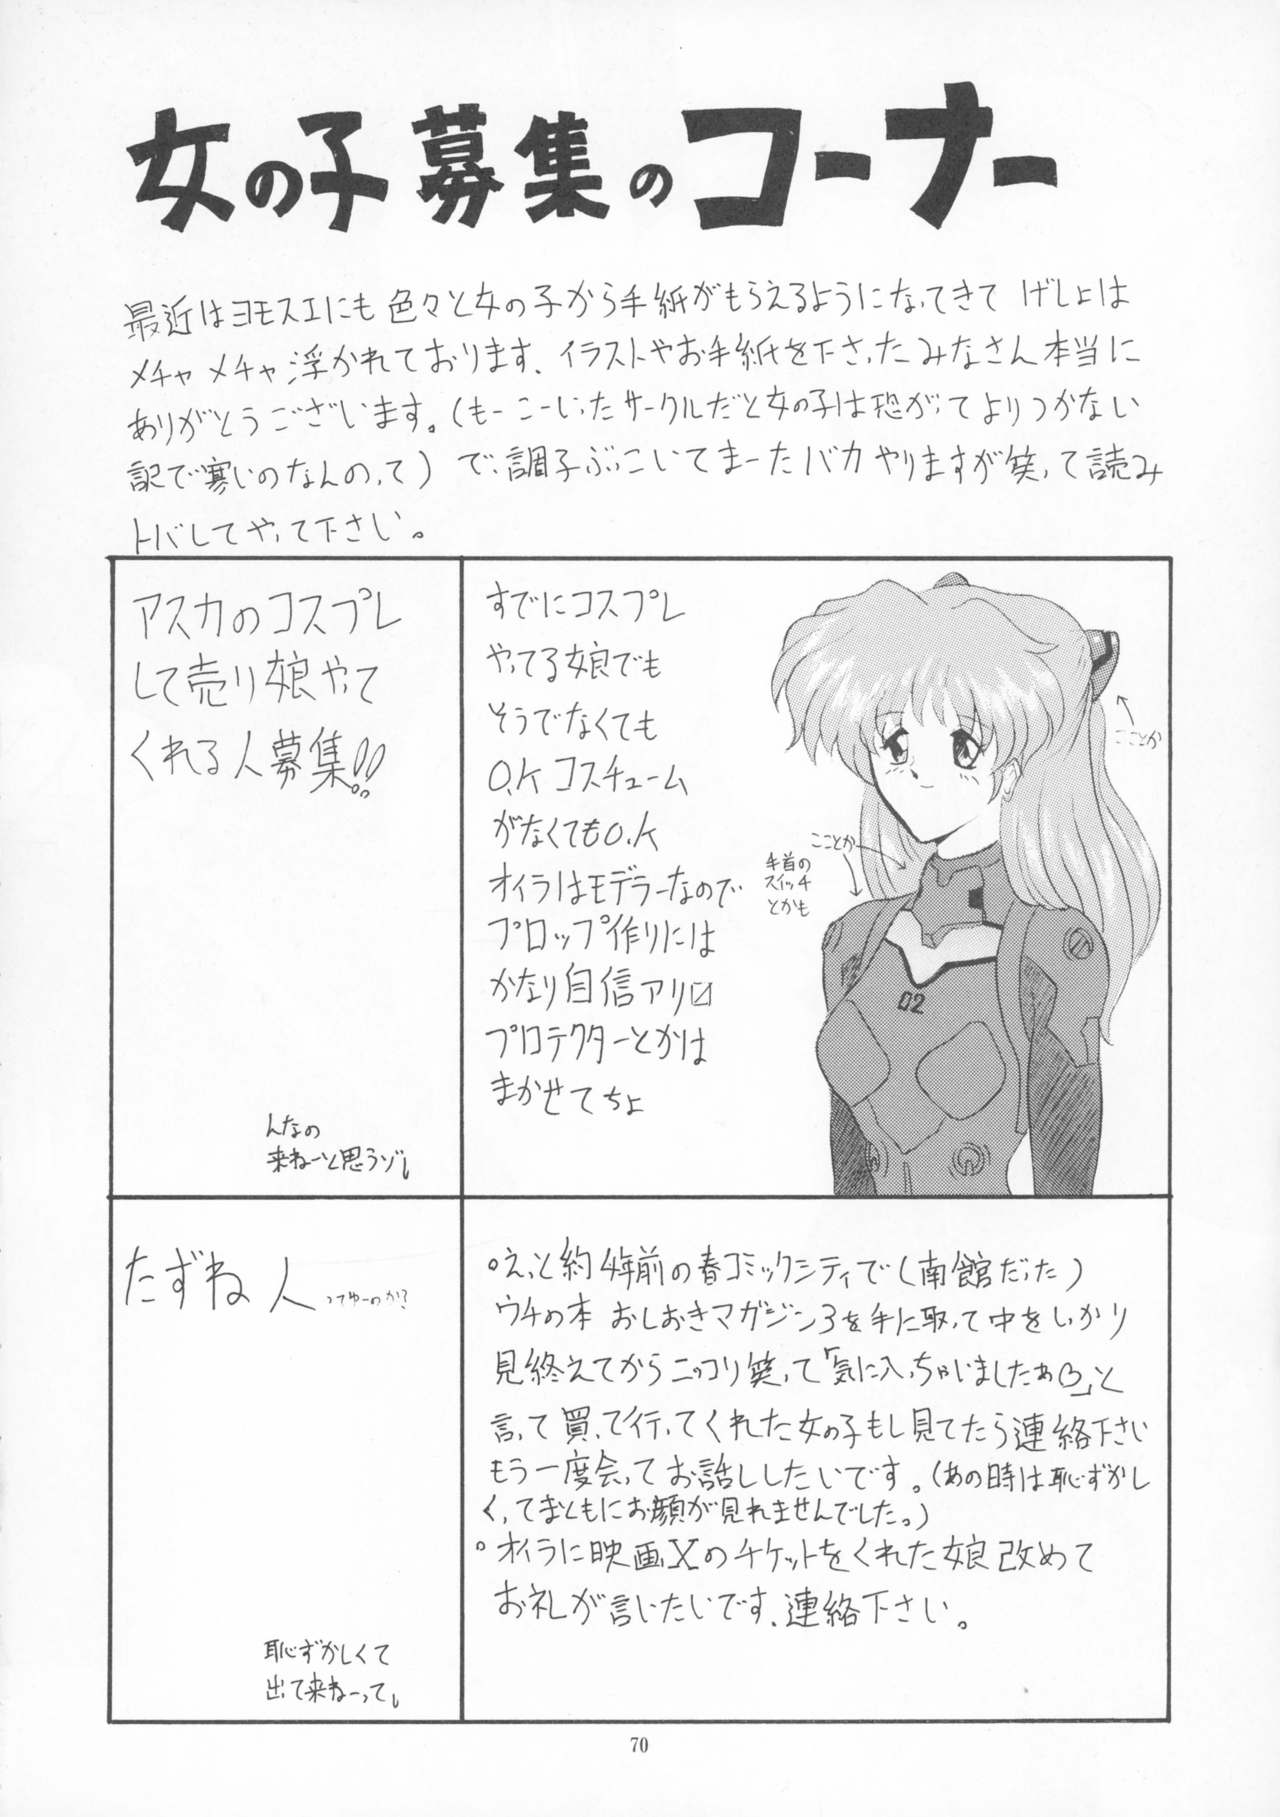 女の子募集のコーナー
最近はヨモスエにも色々と女の子から手紙がもらえるようになってきて げしょは
メチャメチャ浮かれております、イラストやお手紙を下さったみなさん本当に
ありがとうございます。(もーこーいったサークルだと女の子は恐がってよりつかない
訳で寒いのなんのって) で、調子ぶっこいてまーたバカやりますが笑って読み
トバしてやって下さい。
アスカのコスプレ
して売り娘やって
くれる人募集!!
んなの
来ねーと思うゾ」
すでにコスプレ
やってる娘でも
そうでなくても
O.K コスチューム
がなくてもO.K
オイラはモデラーなので
プロップ作りには
かなり自信アリ
プロテクターとかは
まかせてちょ
こことか
こことか
手首の
スイッチ
とかも
02
たずね人 ってゆーのか?
恥ずかしくて
出て来ねーって」
°えっと約4年前の春コミックシティで(南館だった)
ウチの本 おしおきマガジン3を手に取って中をしっかり
見終えてからニッコリ笑って「気に入っちゃいましたぁ♡」と
言って買って行ってくれた女の子もし見てたら連絡下さい
もう一度会ってお話ししたいです。(あの時は恥ずかし
くってまともにお顔が見れませんでした。)
°オイラに映画Xのチケットをくれた娘改めて
お礼が言いたいです、連絡下さい。
70